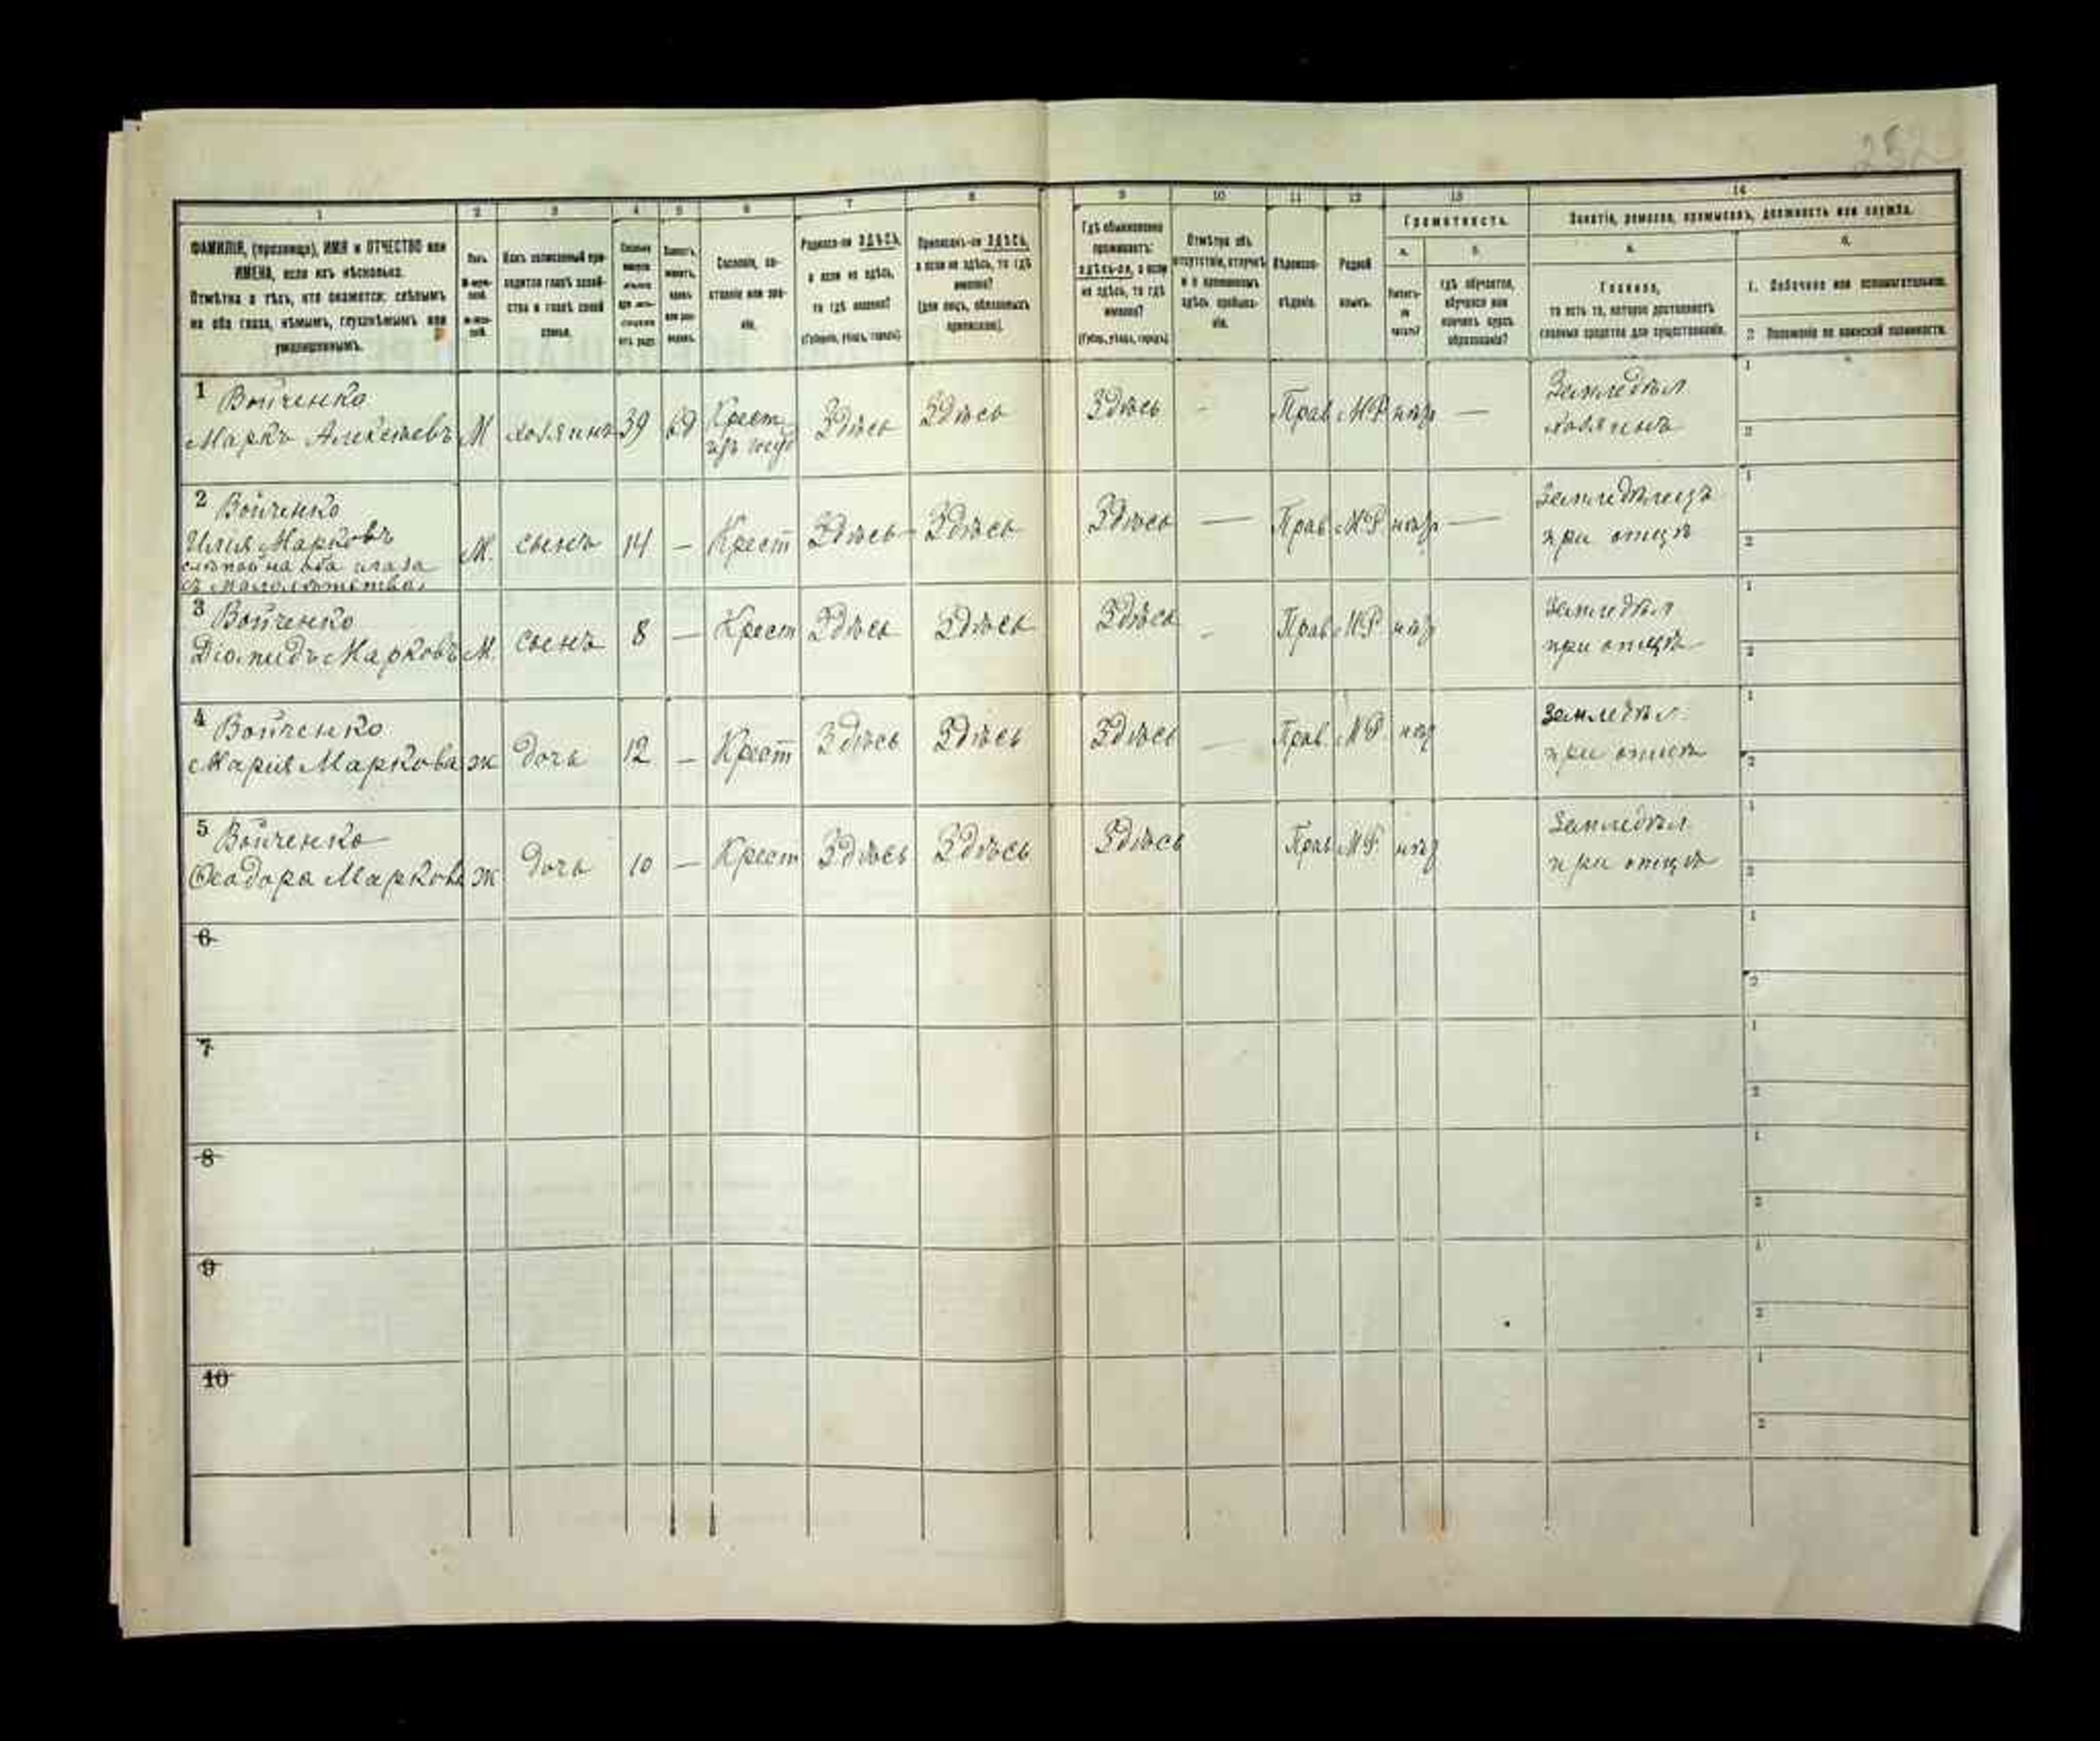 252
1 2 3 4 5 6 7 8 9 10 11 12 13 14
ФАМИЛІЯ, (прозвище), ИМЯ и ОТЧЕСТВО или
ИМЕНА, если ихъ нѣсколько.
Отмѣтка о тѣхъ, кто окажется: слѣпымъ
на оба глаза, нѣмымъ, глухонѣмымъ или
умалишеннымъ.
Полъ.
Какъ записанный при-
ходится главѣ хозяй-
ства и главѣ своей
семьи.
Сословіе, со-
стояніе или зва-
ніе.
Родился-ли ЗДѢСЬ,
а если не здѣсь,
то гдѣ именно?
(Губернія, уѣздъ, городъ).
Приписанъ-ли ЗДѢСЬ,
а если не здѣсь, то гдѣ
именно?
(для лицъ, обязанныхъ
припискою).
Гдѣ обыкновенно
проживаетъ:
здѣсь-ли, а если
не здѣсь, то гдѣ
именно?
(Губер., уѣздъ, городъ)
Отмѣтка объ
отсутствіи, отлучкѣ
и о временномъ
здѣсь пребыва-
ніи.
Вѣроиспо-
вѣданіе.
Родной
языкъ.
Грамотность.
а. б.
Умѣетъ-
ли
читать?
гдѣ обучается,
обучался или
кончилъ курсъ
образованія?
Занятіе, ремесло, промыселъ, должность или служба.
а. б.
Главное,
то есть то, которое доставляетъ
главныя средства для существованія.
1. Побочное или вспомогательное.
2 Положеніе по воинской повинности.
1 Войченко
Маркъ Алексѣевъ М хозяинъ 39 вд Крест Здѣсь Здѣсь Здѣсь - Прав МР нѣтъ — Земледѣл
хозяинъ
1
2
2 Войченко
Илія Марковъ
слѣпой на оба глаза
съ малолѣтства
М. сынъ 14 — Крест Здѣсь Здѣсь Здѣсь — Прав МР нѣтъ — Земледѣлецъ
при отцѣ
1
2
3 Войченко
Діомидъ Марковъ М. сынъ 8 — Крест Здѣсь Здѣсь Здѣсь - Прав МР нѣтъ Земледѣл
при отцѣ
1
2
4 Войченко
Марія Маркова ж дочь 12 — Крест Здѣсь Здѣсь Здѣсь — Прав. МР нѣтъ Земледѣл.
при отцѣ
1
2
5 Войченко
Ѳеодора Маркова ж дочь 10 — Крест Здѣсь Здѣсь Здѣсь Прав МР нѣтъ Земледѣл
при отцѣ
1
2
6
1
2
7
1
2
8
1
2
9
1
2
10
1
2